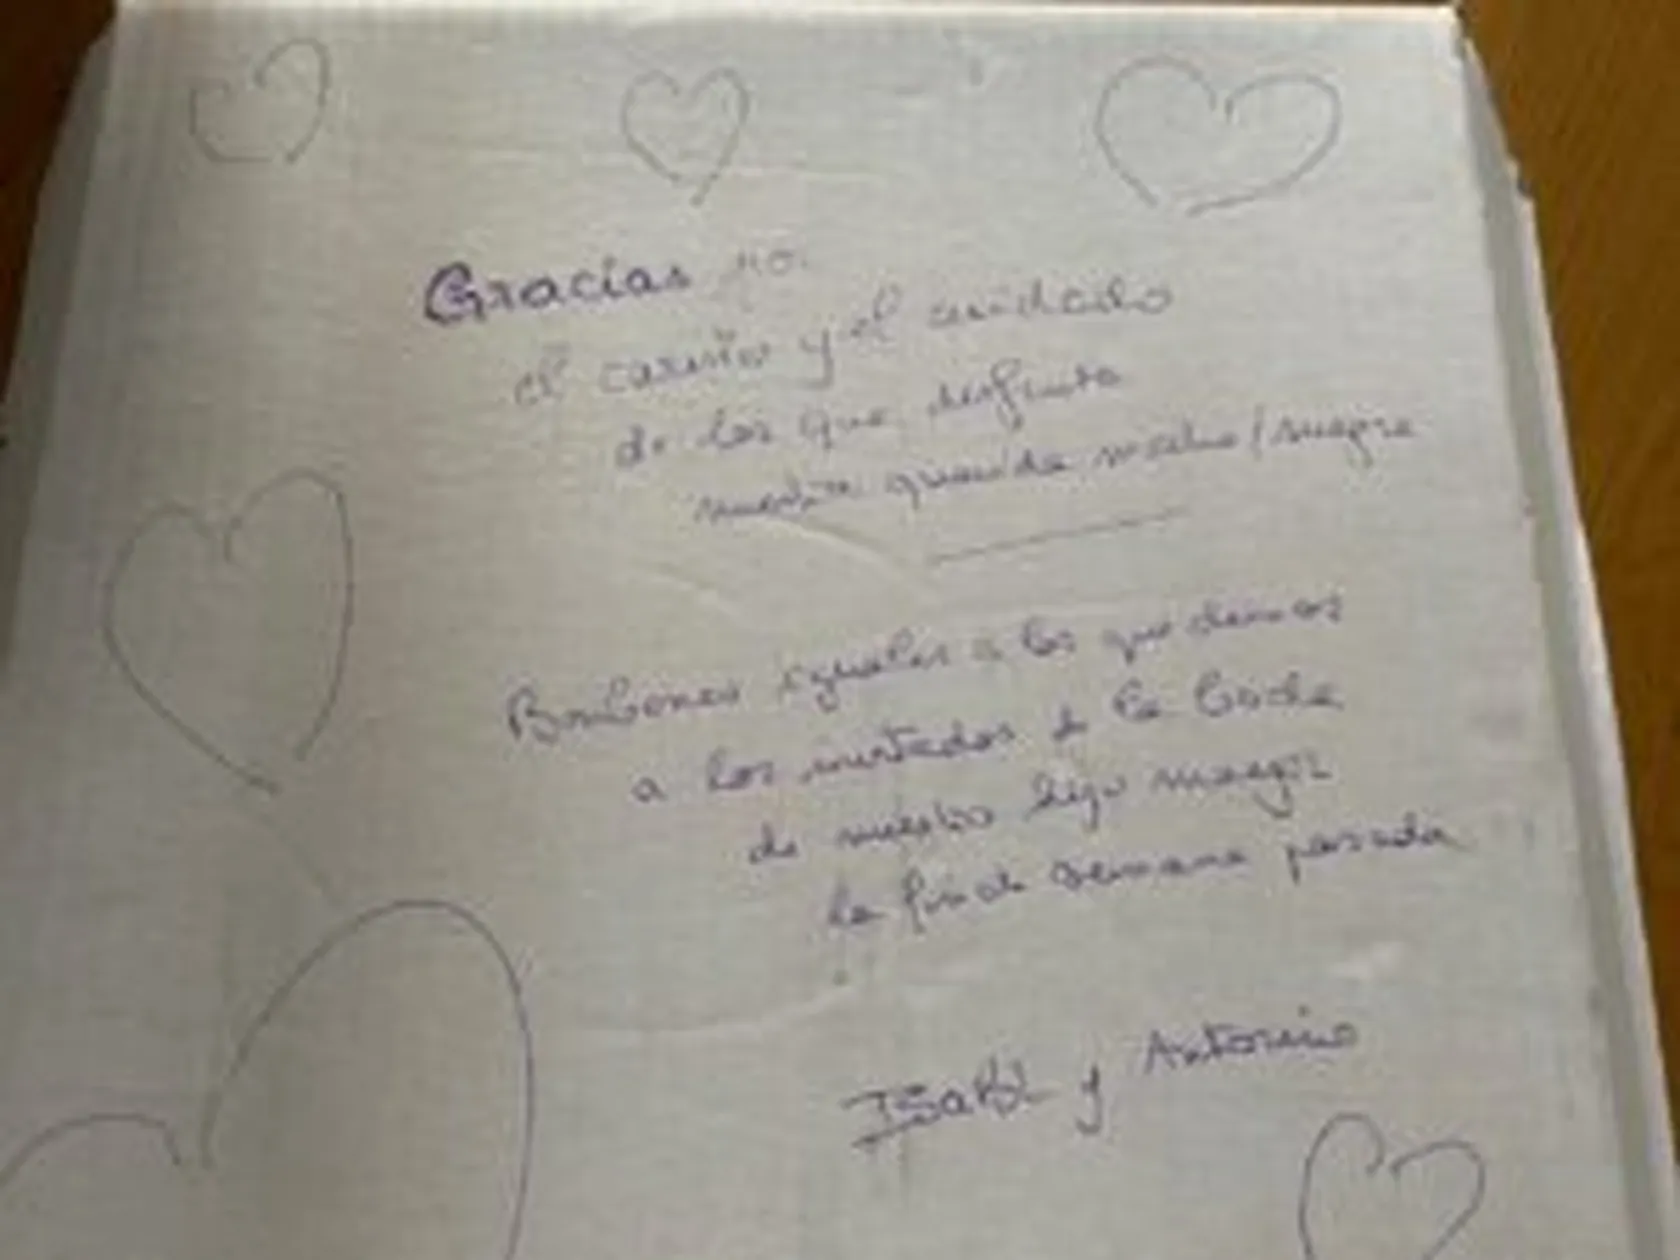 Gracias por
el cariño y el cuidado
de los que disfruta
nuestra querida madre/suegra
Bombones iguales a los que dimos
a los invitados de la boda
de nuestro hijo mayor
el fin de semana pasada
Isabel y Antonino